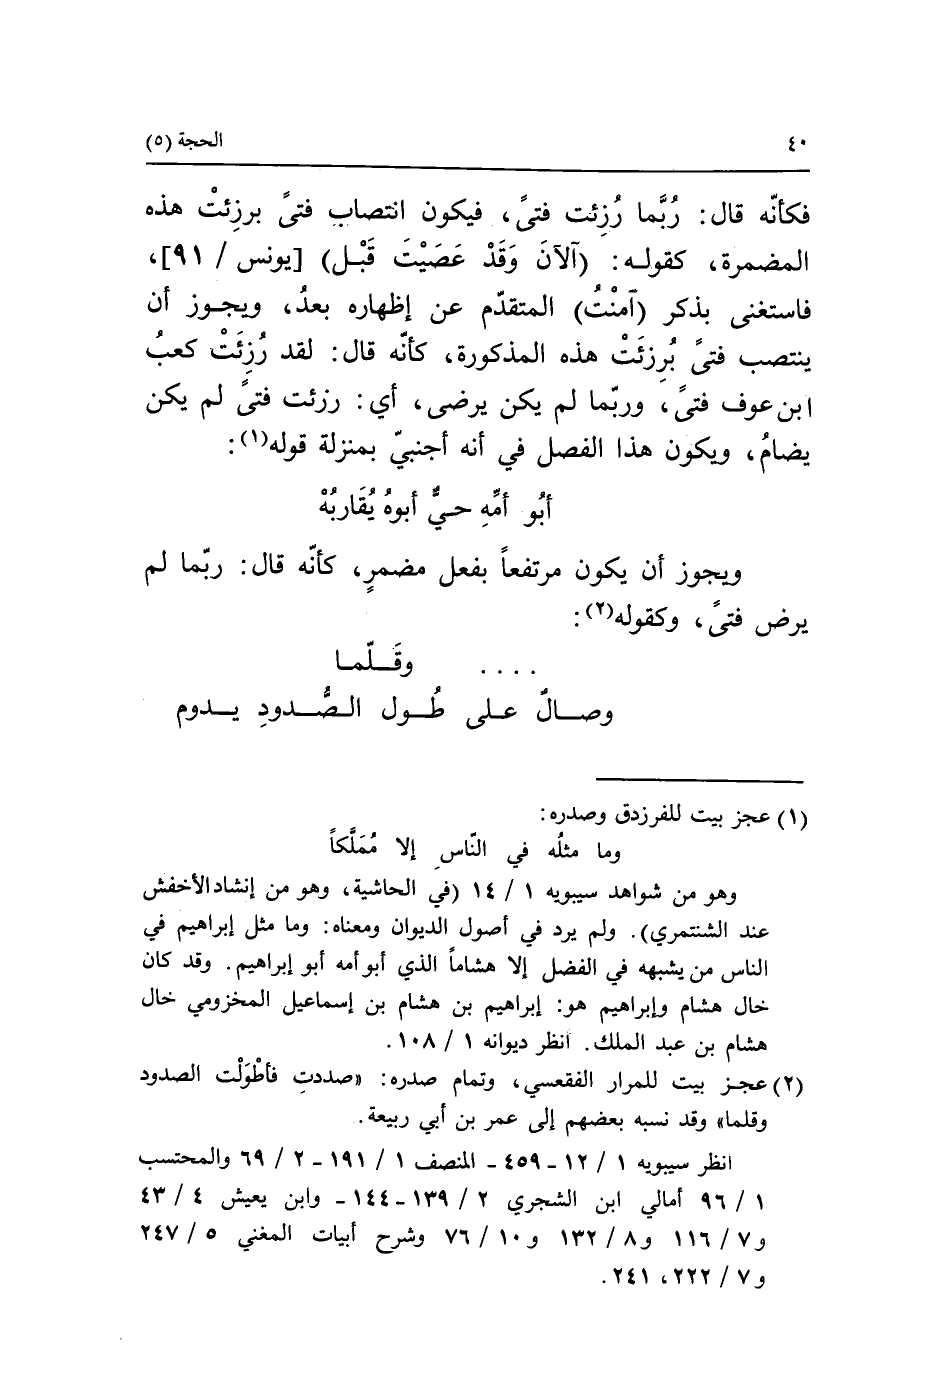 ٤٠ الحجة (٥)
فكأنّه قال: رُبَّما رُزِئت فتىً، فيكون انتصاب فتىً برزِئتْ هذه
المضمرة، كقوله: (آلآنَ وَقَدْ عَصَيْتَ قَبْل) [يونس / ٩١]،
فاستغنى بذكر (آمنْتُ) المتقدّم عن إظهاره بعدُ، ويجوز أن
ينتصب فتىً بُرزِئَتْ هذه المذكورة، كأنّه قال: لقد رُزِئَتْ كعبُ
ابن عوف فتىً، وربّما لم يكن يرضى، أي: رزئت فتىً لم يكن
يضامُ، ويكون هذا الفصل في أنه أجنبيّ بمنزلة قوله(١):
أبُو أمِّهِ حيٌّ أبوهُ يُقَاربُهْ
ويجوز أن يكون مرتفعاً بفعل مضمرٍ، كأنّه قال: ربّما لم
يرض فتىً، وكقوله(٢):
.... وقَلّما
وصالٌ على طُول الصُّدودِ يدوم
(١) عجز بيت للفرزدق وصدره:
وما مثلُه في النّاسِ إلا مُمَلَّكاً
وهو من شواهد سيبويه ١ / ١٤ (في الحاشية، وهو من إنشاد الأخفش
عند الشنتمري). ولم يرد في أصول الديوان ومعناه: وما مثل إبراهيم في
الناس من يشبهه في الفضل إلا هشاماً الذي أبو أمه أبو إبراهيم. وقد كان
خال هشام وإبراهيم هو: إبراهيم بن هشام بن إسماعيل المخزومي خال
هشام بن عبد الملك. انظر ديوانه ١ / ١٠٨.
(٢) عجز بيت للمرار الفقعسي، وتمام صدره: «صددتِ فأطْوَلْت الصدود
وقلما» وقد نسبه بعضهم إلى عمر بن أبي ربيعة.
انظر سيبويه ١ / ١٢ - ٤٥٩ - المنصف ١ / ١٩١ - ٢ / ٦٩ والمحتسب
١ / ٩٦ أمالي ابن الشجري ٢ / ١٣٩ - ١٤٤ - وابن يعيش ٤ / ٤٣
و٧ / ١١٦ و٨ / ١٣٢ و١٠ / ٧٦ وشرح أبيات المغني ٥ / ٢٤٧
و٧ / ٢٢٢، ٢٤١.